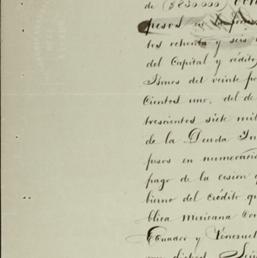 de ($250.000) 
pesos en la
tos ochenta y seis
del Capital y rédito
Simos del veinte po
Cientos uno, del de
trescientos siete mil
de la Deuda In
pesos en numerario
pago de la cesion y
bierno del crédito qu
blica Mexicana Con
Ecuador y Venezuel